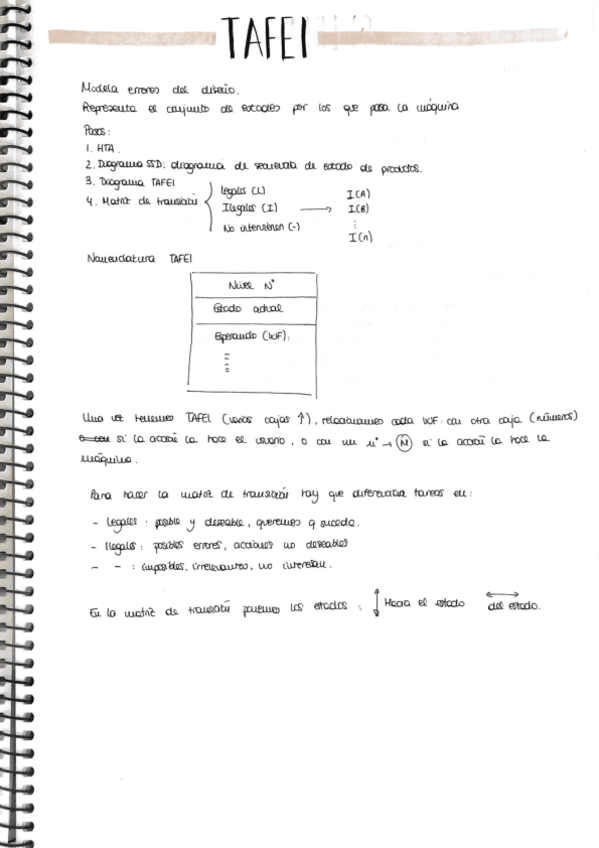 TAFEI
Modela errores del diseño.
Representa el conjunto de estados por los que pasa la máquina
Pasos:
1. HTA.
2. Diagrama SSD: diagrama de secuencia de estado de productos.
3. Diagrama TAFEI
4. Matriz de transición
legales (L)
Ilegales (I) → I(A)
I(B)
⋮
I(n)
No intervienen (-)
Nomenclatura TAFEI
Nivel Nº
Estado actual
Esperando (WF):
Una vez tenemos TAFEI (varias cajas ↑), relacionamos cada WF: con otra caja (números)
si la acción la hace el usuario, o con un nº → M si la acción la hace la
máquina.
Para hacer la matriz de transición hay que diferenciar tareas en:
- legales: posible y deseable, queremos q suceda.
- Ilegales: posibles errores, acciones no deseables
- - : imposibles, irrelevantes, no interesan.
En la matriz de transición ponemos los estados: ↕ Hacia el estado ↔ del estado.